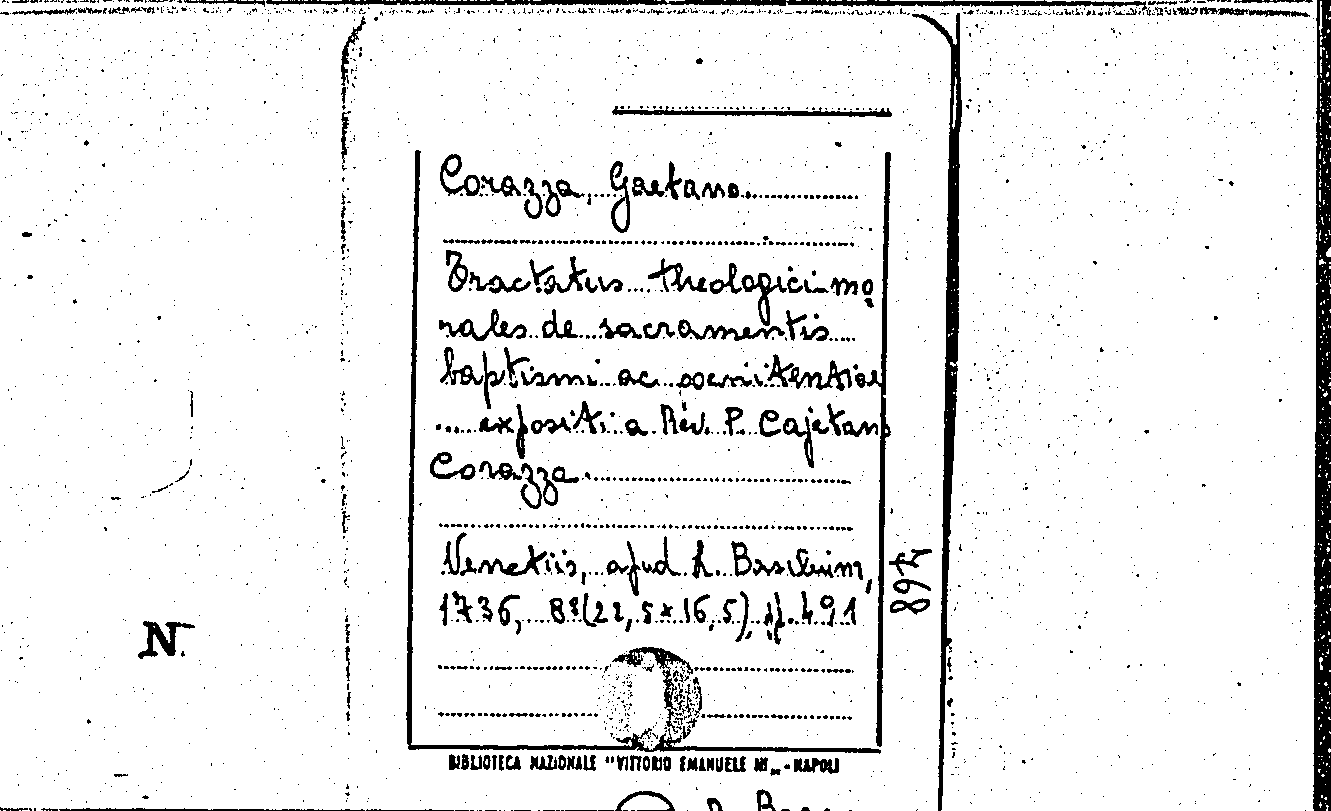 Corazza, Gaetano.
Tractatus theologici-mo
rales de sacramentis
baptismi ac poenitentiae
... expositi a Rev. P. Cajetano
Corazza.
Venetiis, apud L. Basilium,
1736, 8º (22,5x16,5), pp. 491
468
N
BIBLIOTECA NAZIONALE "VITTORIO EMANUELE III„ - NAPOLI